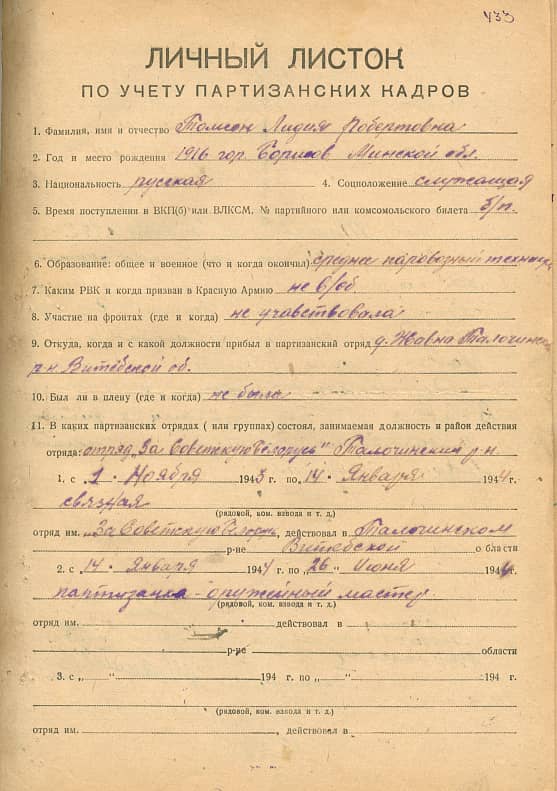 433
ЛИЧНЫЙ ЛИСТОК
ПО УЧЕТУ ПАРТИЗАНСКИХ КАДРОВ
1. Фамилия, имя и отчество Томсон Лидия Робертовна
2. Год и место рождения 1916 гор. Борисов Минской обл.
3. Национальность русская 4. Соцположение служащая
5. Время поступления в ВКП(б) или ВЛКСМ, № партийного или комсомольского билета б/п.
6. Образование: общее и военное (что и когда окончил) среднее паровозный техник
7. Каким РВК и когда призван в Красную Армию не в/об.
8. Участие на фронтах (где и когда) не учавствовала
9. Откуда, когда и с какой должности прибыл в партизанский отряд д. Жавна Талочинск
р-н Витебской об.
10. Был ли в плену (где и когда) не была
11. В каких партизанских отрядах ( или группах) состоял, занимаемая должность и район действия
отряда: отряд "За Советскую Беларусь" Талочинский р-н
1. с 1 Ноября 1943 г. по 14 Января 1944 г.
связная
(рядовой, ком. взвода и т. д.)
отряд им. "За Советскую Беларусь, действовал в Талочинском
р-не Витебской области
2. с 14 Января 1944 г. по "26" Июня 1944 г.
партизанка-оружейный мастер
(рядовой, ком. взвода и т. д.)
отряд им. действовал в
р-не области
3. с „ “ 194 г. по „ “ 194 г.
(рядовой, ком. взвода и т. д.)
отряд им. действовал в